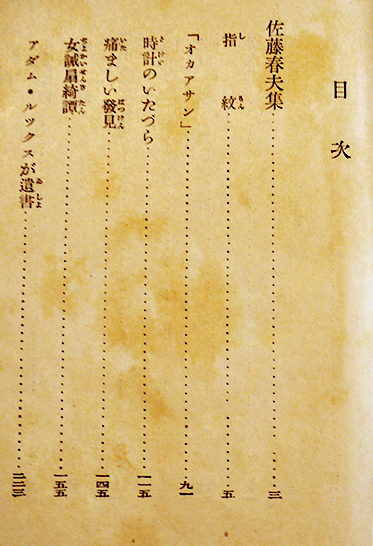 目次
佐藤春夫集……三
指紋……五
「オカアサン」……九一
時計のいたづら……一一五
痛ましい發見……一四五
女誡扇綺譚……一五五
アダム・ルックスが遺書……二二三